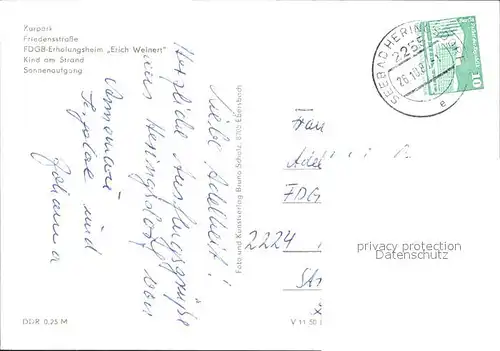 Kurpark
Friedensstraße
FDGB-Erholungsheim „Erich Weinert"
Kind am Strand
Sonnenaufgang
Liebe Adelheit!
Herzliche Ausflugsgrüße
aus Heringsdorf von
Annemarie
und
Johanna
DDR 0,25 M
Foto und Kunstverlag Bruno Scholz, 8705 Ebersbach
V 11 50
SEEBAD HERINGSDORF
2255
26.10.8
e
10
Frau
Adel
FDG
2224
St
privacy protection
Datenschutz